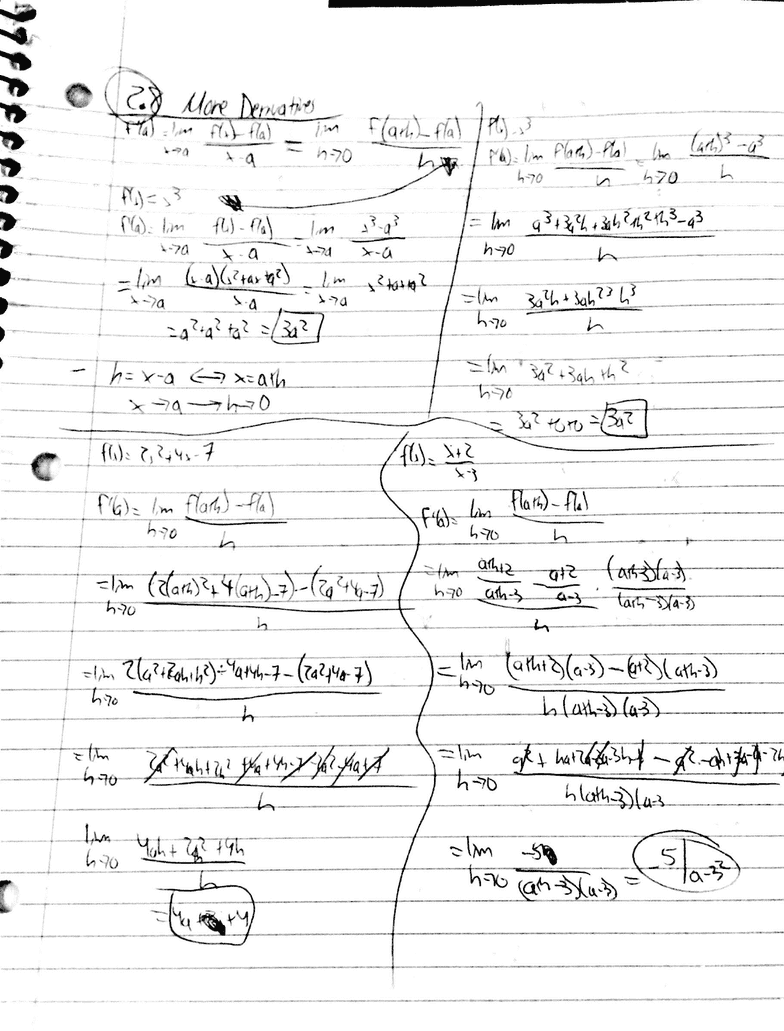 2.8 More Derivatives
f'(a) = lim x→a (f(x) - f(a))/(x - a) = lim h→0 (f(a+h) - f(a))/h
f(x) = x³
f'(a) = lim x→a (f(x) - f(a))/(x - a) = lim x→a (x³ - a³)/(x - a)
= lim x→a (x - a)(x² + ax + a²)/(x - a) = lim x→a x² + ax + a²
= a² + a² + a² = 3a²
- h = x - a ↔ x = a+h
x → a → h → 0
f(x) = x³
f'(a) = lim h→0 (f(a+h) - f(a))/h = lim h→0 ((a+h)³ - a³)/h
= lim h→0 (a³ + 3a²h + 3ah² + h³ - a³)/h
= lim h→0 (3a²h + 3ah² + h³)/h
= lim h→0 3a² + 3ah + h²
= 3a² + 0 + 0 = 3a²
f(x) = 2x² + 4x - 7
f'(a) = lim h→0 (f(a+h) - f(a))/h
= lim h→0 ((2(a+h)² + 4(a+h) - 7) - (2a² + 4a - 7))/h
= lim h→0 (2(a² + 2ah + h²) + 4a + 4h - 7 - (2a² + 4a - 7))/h
= lim h→0 (2a² + 4ah + 2h² + 4a + 4h - 7 - 2a² - 4a + 7)/h
lim h→0 (4ah + 2h² + 4h)/h
= 4a + 4
f(x) = (x+2)/(x-3)
f'(a) = lim h→0 (f(a+h) - f(a))/h
= lim h→0 ((a+h+2)/(a+h-3) - (a+2)/(a-3))/h · (a+h-3)(a-3)/(a+h-3)(a-3)
= lim h→0 ((a+h+2)(a-3) - (a+2)(a+h-3))/(h(a+h-3)(a-3))
= lim h→0 /(h(a+h-3)(a-3
= lim h→0 -5/((a+h-3)(a-3)) = -5/a-3²